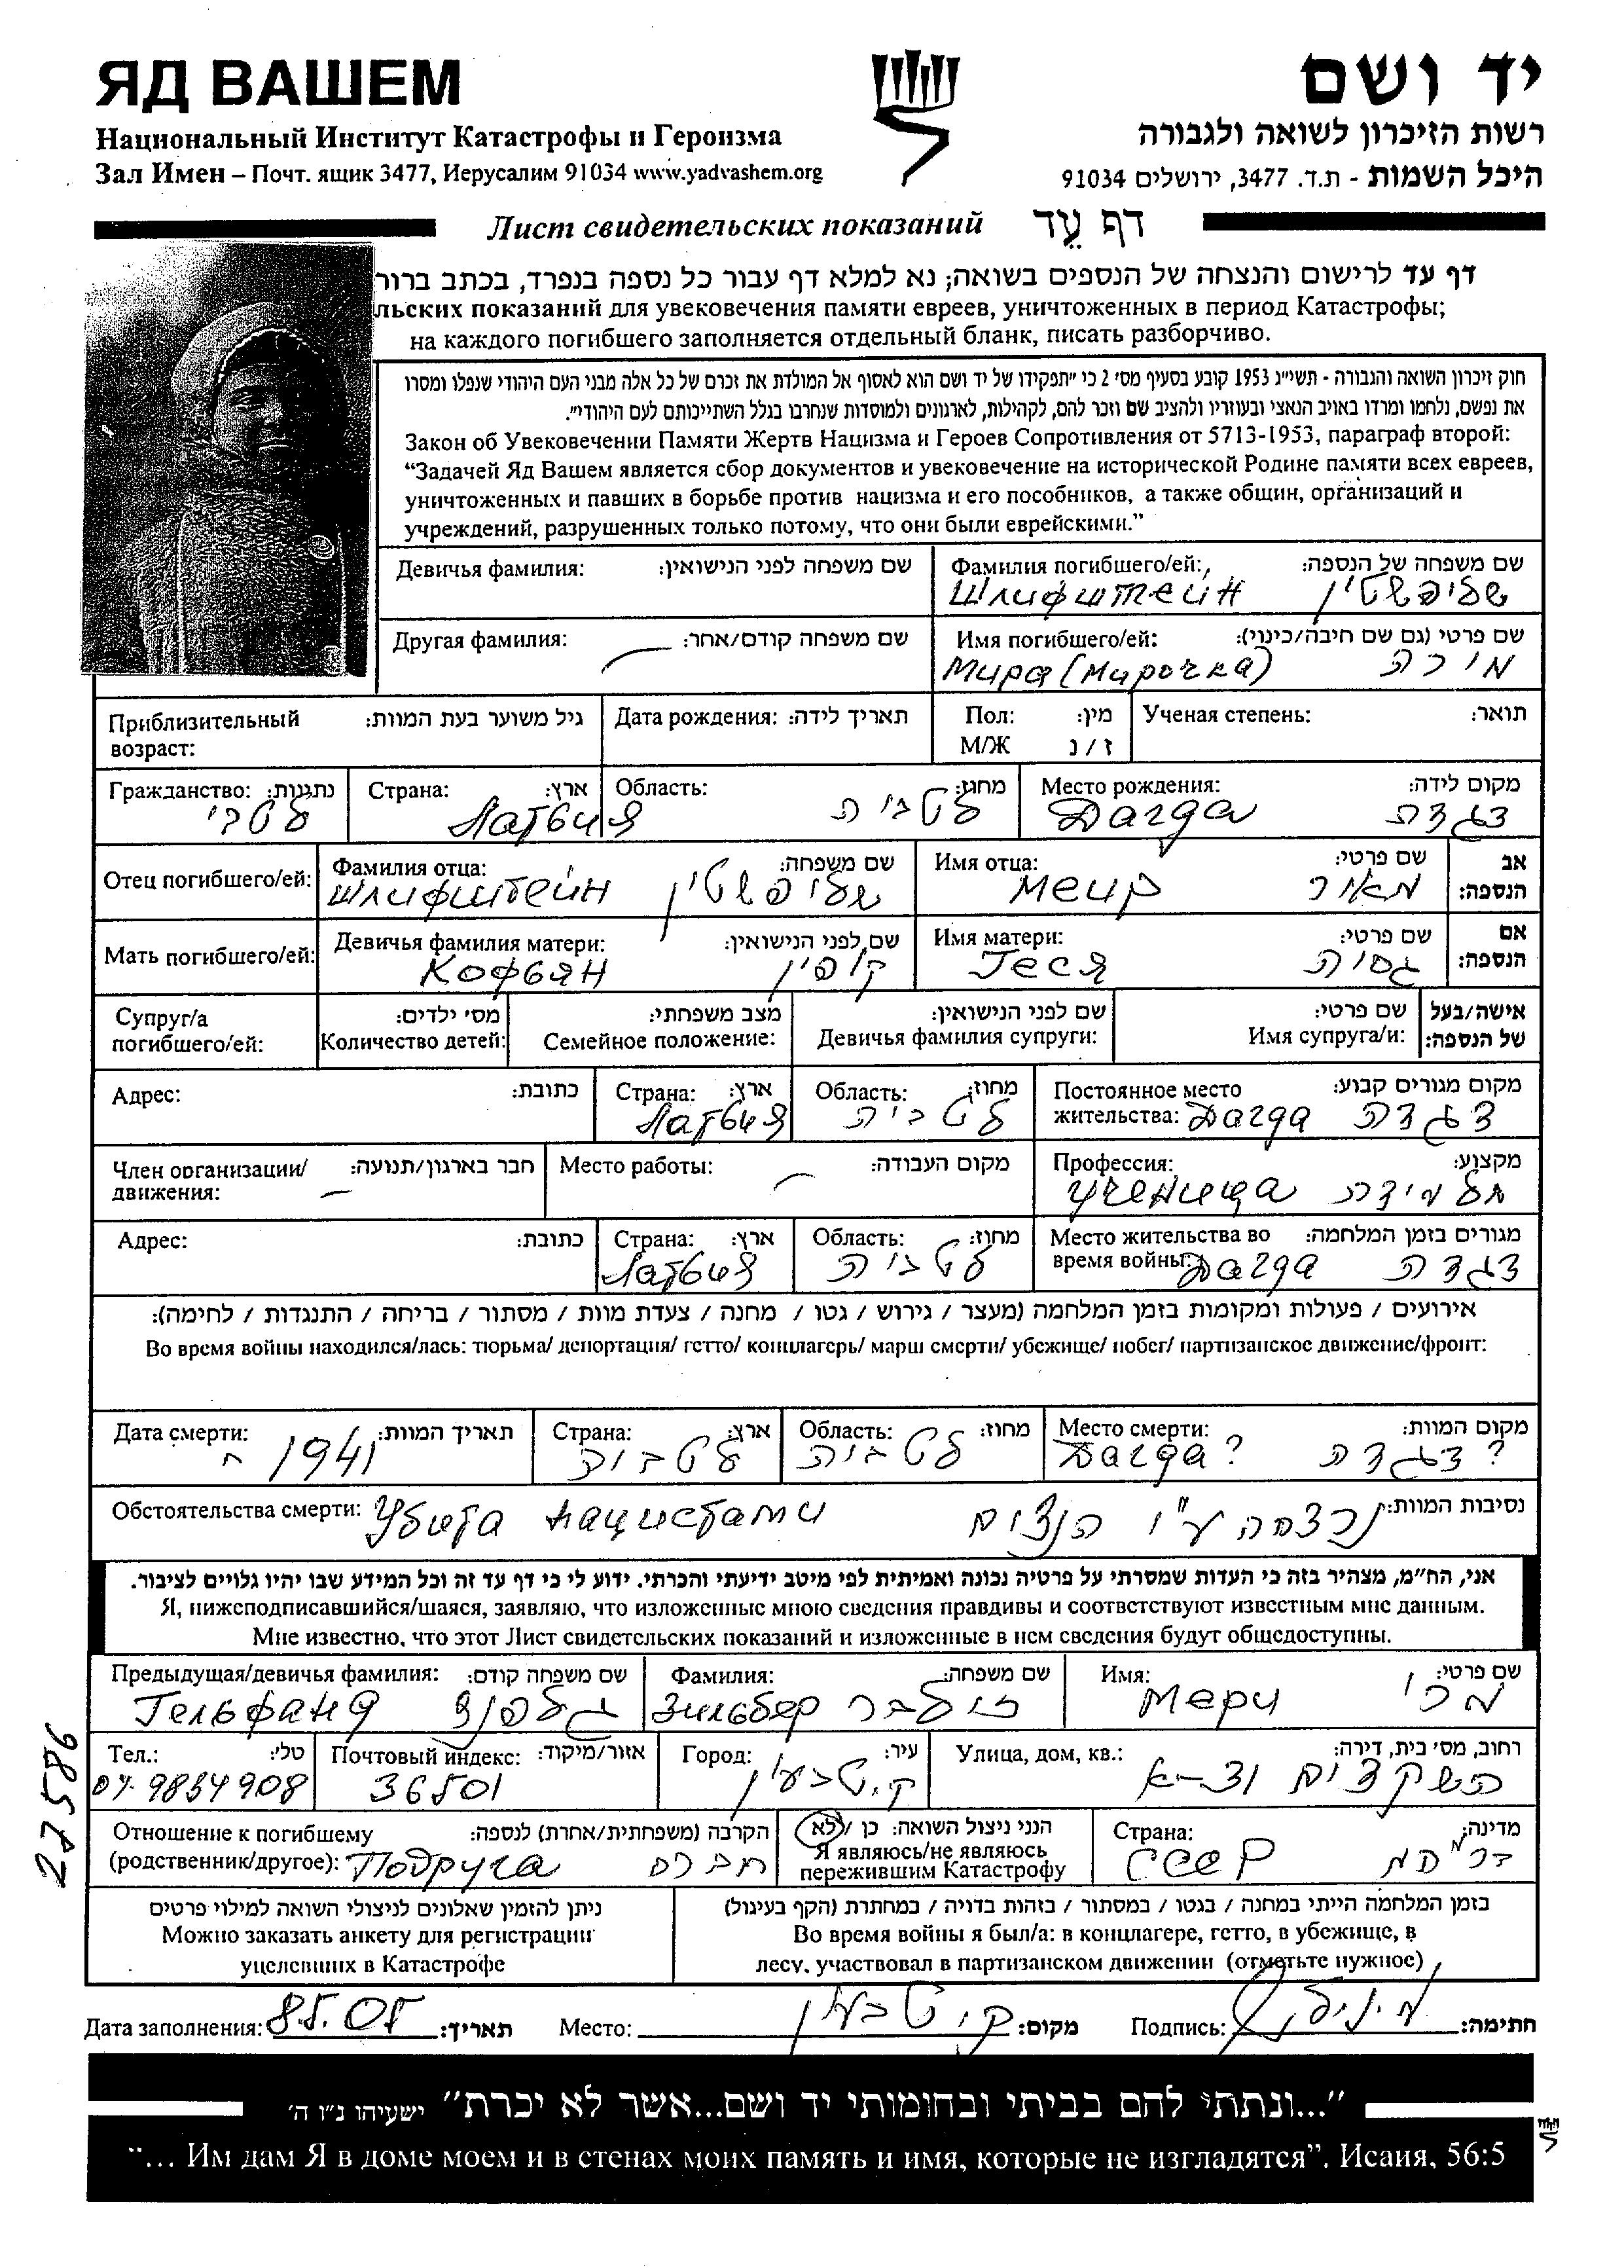 ЯД ВАШЕМ
יד ושם
Национальный Институт Катастрофы и Героизма
רשות הזיכרון לשואה ולגבורה
Зал Имен – Почт. ящик 3477, Иерусалим 91034 www.yadvashem.org
היכל השמות - ת.ד. 3477, ירושלים 91034
Лист свидетельских показаний דף עֵד
דף עד לרישום והנצחה של הנספים בשואה; נא למלא דף עבור כל נספה בנפרד, בכתב ברור
льских показаний для увековечения памяти евреев, уничтоженных в период Катастрофы;
на каждого погибшего заполняется отдельный бланк, писать разборчиво.
חוק זיכרון השואה והגבורה - תשי״ג 1953 קובע בסעיף מס׳ 2 כי ״תפקידו של יד ושם הוא לאסוף אל המולדת את זכרם של כל אלה מבני העם היהודי שנפלו ומסרו
את נפשם, נלחמו ומרדו באויב הנאצי ובעוזריו ולהציב שם וזכר להם, לקהילות, לארגונים ולמוסדות שנחרבו בגלל השתייכותם לעם היהודי״.
Закон об Увековечении Памяти Жертв Нацизма и Героев Сопротивления от 5713-1953, параграф второй:
“Задачей Яд Вашем является сбор документов и увековечение на исторической Родине памяти всех евреев,
уничтоженных и павших в борьбе против нацизма и его пособников, а также общин, организаций и
учреждений, разрушенных только потому, что они были еврейскими.”
Девичья фамилия: שם משפחה לפני הנישואין:
Фамилия погибшего/ей: שם משפחה של הנספה:
Шлифштейн שליפשטיין
Другая фамилия: שם משפחה קודם/אחר:
Имя погибшего/ей: שם פרטי (גם שם חיבה/כינוי):
Мира (Мирочка) מירה
Приблизительный возраст: גיל משוער בעת המוות:
Дата рождения: תאריך לידה:
Пол: מין:
М/Ж ז / נ
Ученая степень: תואר:
Гражданство: נתינות:
לטבי
Страна: ארץ:
Латвия
Область: מחוז:
לטביה
Место рождения: מקום לידה:
Дагда דגדה
Отец погибшего/ей:
Фамилия отца: שם משפחה:
Шлифштейн שליפשטיין
Имя отца: שם פרטי:
Меир מאיר
אב הנספה:
Мать погибшего/ей:
Девичья фамилия матери: שם לפני הנישואין:
Кофьян קופין
Имя матери: שם פרטי:
Геся גסיה
אם הנספה:
Супруг/а погибшего/ей:
מס׳ ילדים: Количество детей:
מצב משפחתי: Семейное положение:
שם לפני הנישואין: Девичья фамилия супруги:
שם פרטי: Имя супруга/и:
אישה/בעל של הנספה:
Адрес: כתובת:
Страна: ארץ:
Латвия
Область: מחוז:
לטביה
Постоянное место מקום מגורים קבוע:
жительства: Дагда דגדה
Член организации/ חבר בארגון/תנועה:
движения:
Место работы: מקום העבודה:
Профессия: מקצוע:
ученица תלמידה
Адрес: כתובת:
Страна: ארץ:
Латвия
Область: מחוז:
לטביה
Место жительства во מגורים בזמן המלחמה:
время войны: Дагда דגדה
אירועים / פעולות ומקומות בזמן המלחמה (מעצר / גירוש / גטו / מחנה / צעדת מוות / מסתור / בריחה / התנגדות / לחימה):
Во время войны находился/лась: тюрьма/ депортация/ гетто/ концлагерь/ марш смерти/ убежище/ побег/ партизанское движение/фронт:
Дата смерти: תאריך המוות:
1941
Страна: ארץ:
לטביה
Область: מחוז:
לטביה
Место смерти: מקום המוות:
Дагда? דגדה?
Обстоятельства смерти: Убита нацистами נרצחה ע״י הנצים נסיבות המוות:
אני, הח״מ, מצהיר בזה כי העדות שמסרתי על פרטיה נכונה ואמיתית לפי מיטב ידיעתי והכרתי. ידוע לי כי דף עד זה וכל המידע שבו יהיו גלויים לציבור.
Я, нижеподписавшийся/шаяся, заявляю, что изложенные мною сведения правдивы и соответствуют известным мне данным.
Мне известно, что этот Лист свидетельских показаний и изложенные в нем сведения будут общедоступны.
Предыдущая/девичья фамилия: שם משפחה קודם:
Гельфанд גלפנד
Фамилия: שם משפחה:
Зильбер זילבר
Имя: שם פרטי:
Мери מרי
Тел.: טלי:
04 9834908
Почтовый индекс: אזור/מיקוד:
36501
Город: עיר:
ק.טבעון
Улица, дом, кв.: רחוב, מס׳ בית, דירה:
השקדים
Отношение к погибшему הקרבה (משפחתית/אחרת) לנספה:
(родственник/другое): Подруга חברה
הנני ניצול השואה: כן / לא
Я являюсь/не являюсь
пережившим Катастрофу
Страна: מדינה:
СССР
ברה״מ
ניתן להזמין שאלונים לניצולי השואה למילוי פרטים
Можно заказать анкету для регистрации
уцелевших в Катастрофе
בזמן המלחמה הייתי במחנה / בגטו / במסתור / בזהות בדויה / במחתרת (הקף בעיגול)
Во время войны я был/а: в концлагере, гетто, в убежище, в
лесу, участвовал в партизанском движении (отметьте нужное)
Дата заполнения: תאריך:
Место: ק.טבעון מקום:
Подпись: חתימה:
22586
״...ונתתי להם בביתי ובחומותי יד ושם...אשר לא יכרת״ ישעיהו נ״ו ה׳
“... Им дам Я в доме моем и в стенах моих память и имя, которые не изгладятся”. Исаия, 56:5